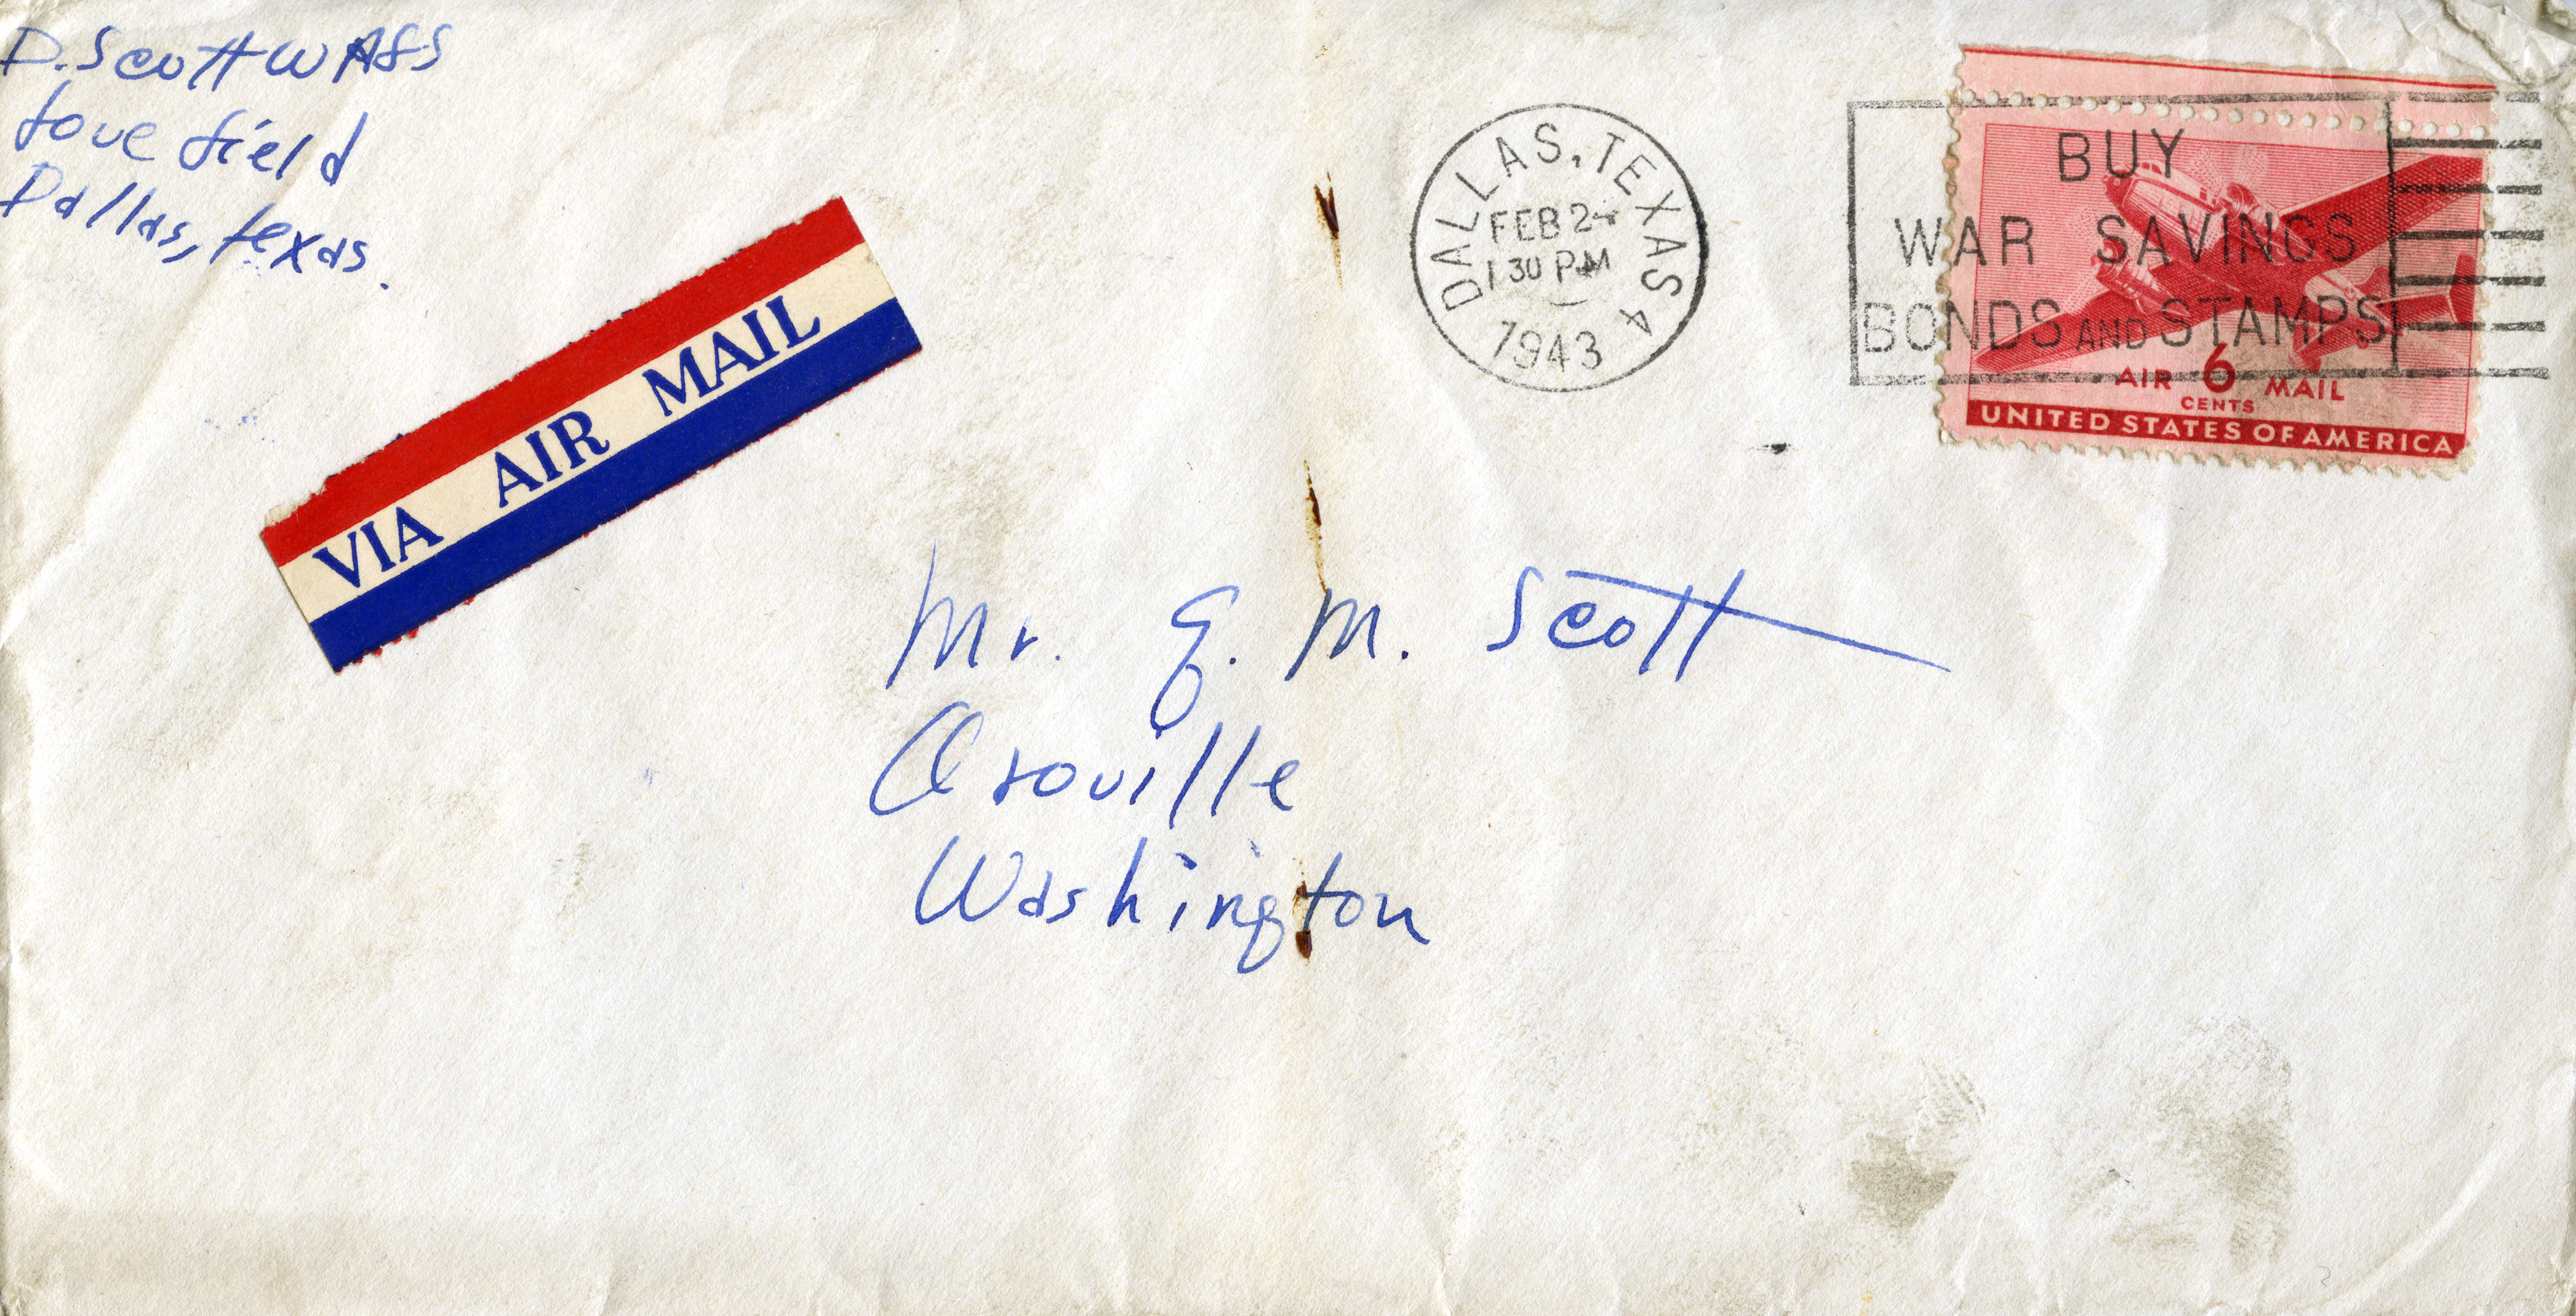 D. Scott WAFS
Love Field
Dallas, Texas.
VIA AIR MAIL
DALLAS, TEXAS 4
FEB 24
1 30 PM
1943
BUY
WAR SAVINGS
BONDS AND STAMPS
AIR 6 MAIL
CENTS
UNITED STATES OF AMERICA
Mr. E. M. Scott
Oroville
Washington